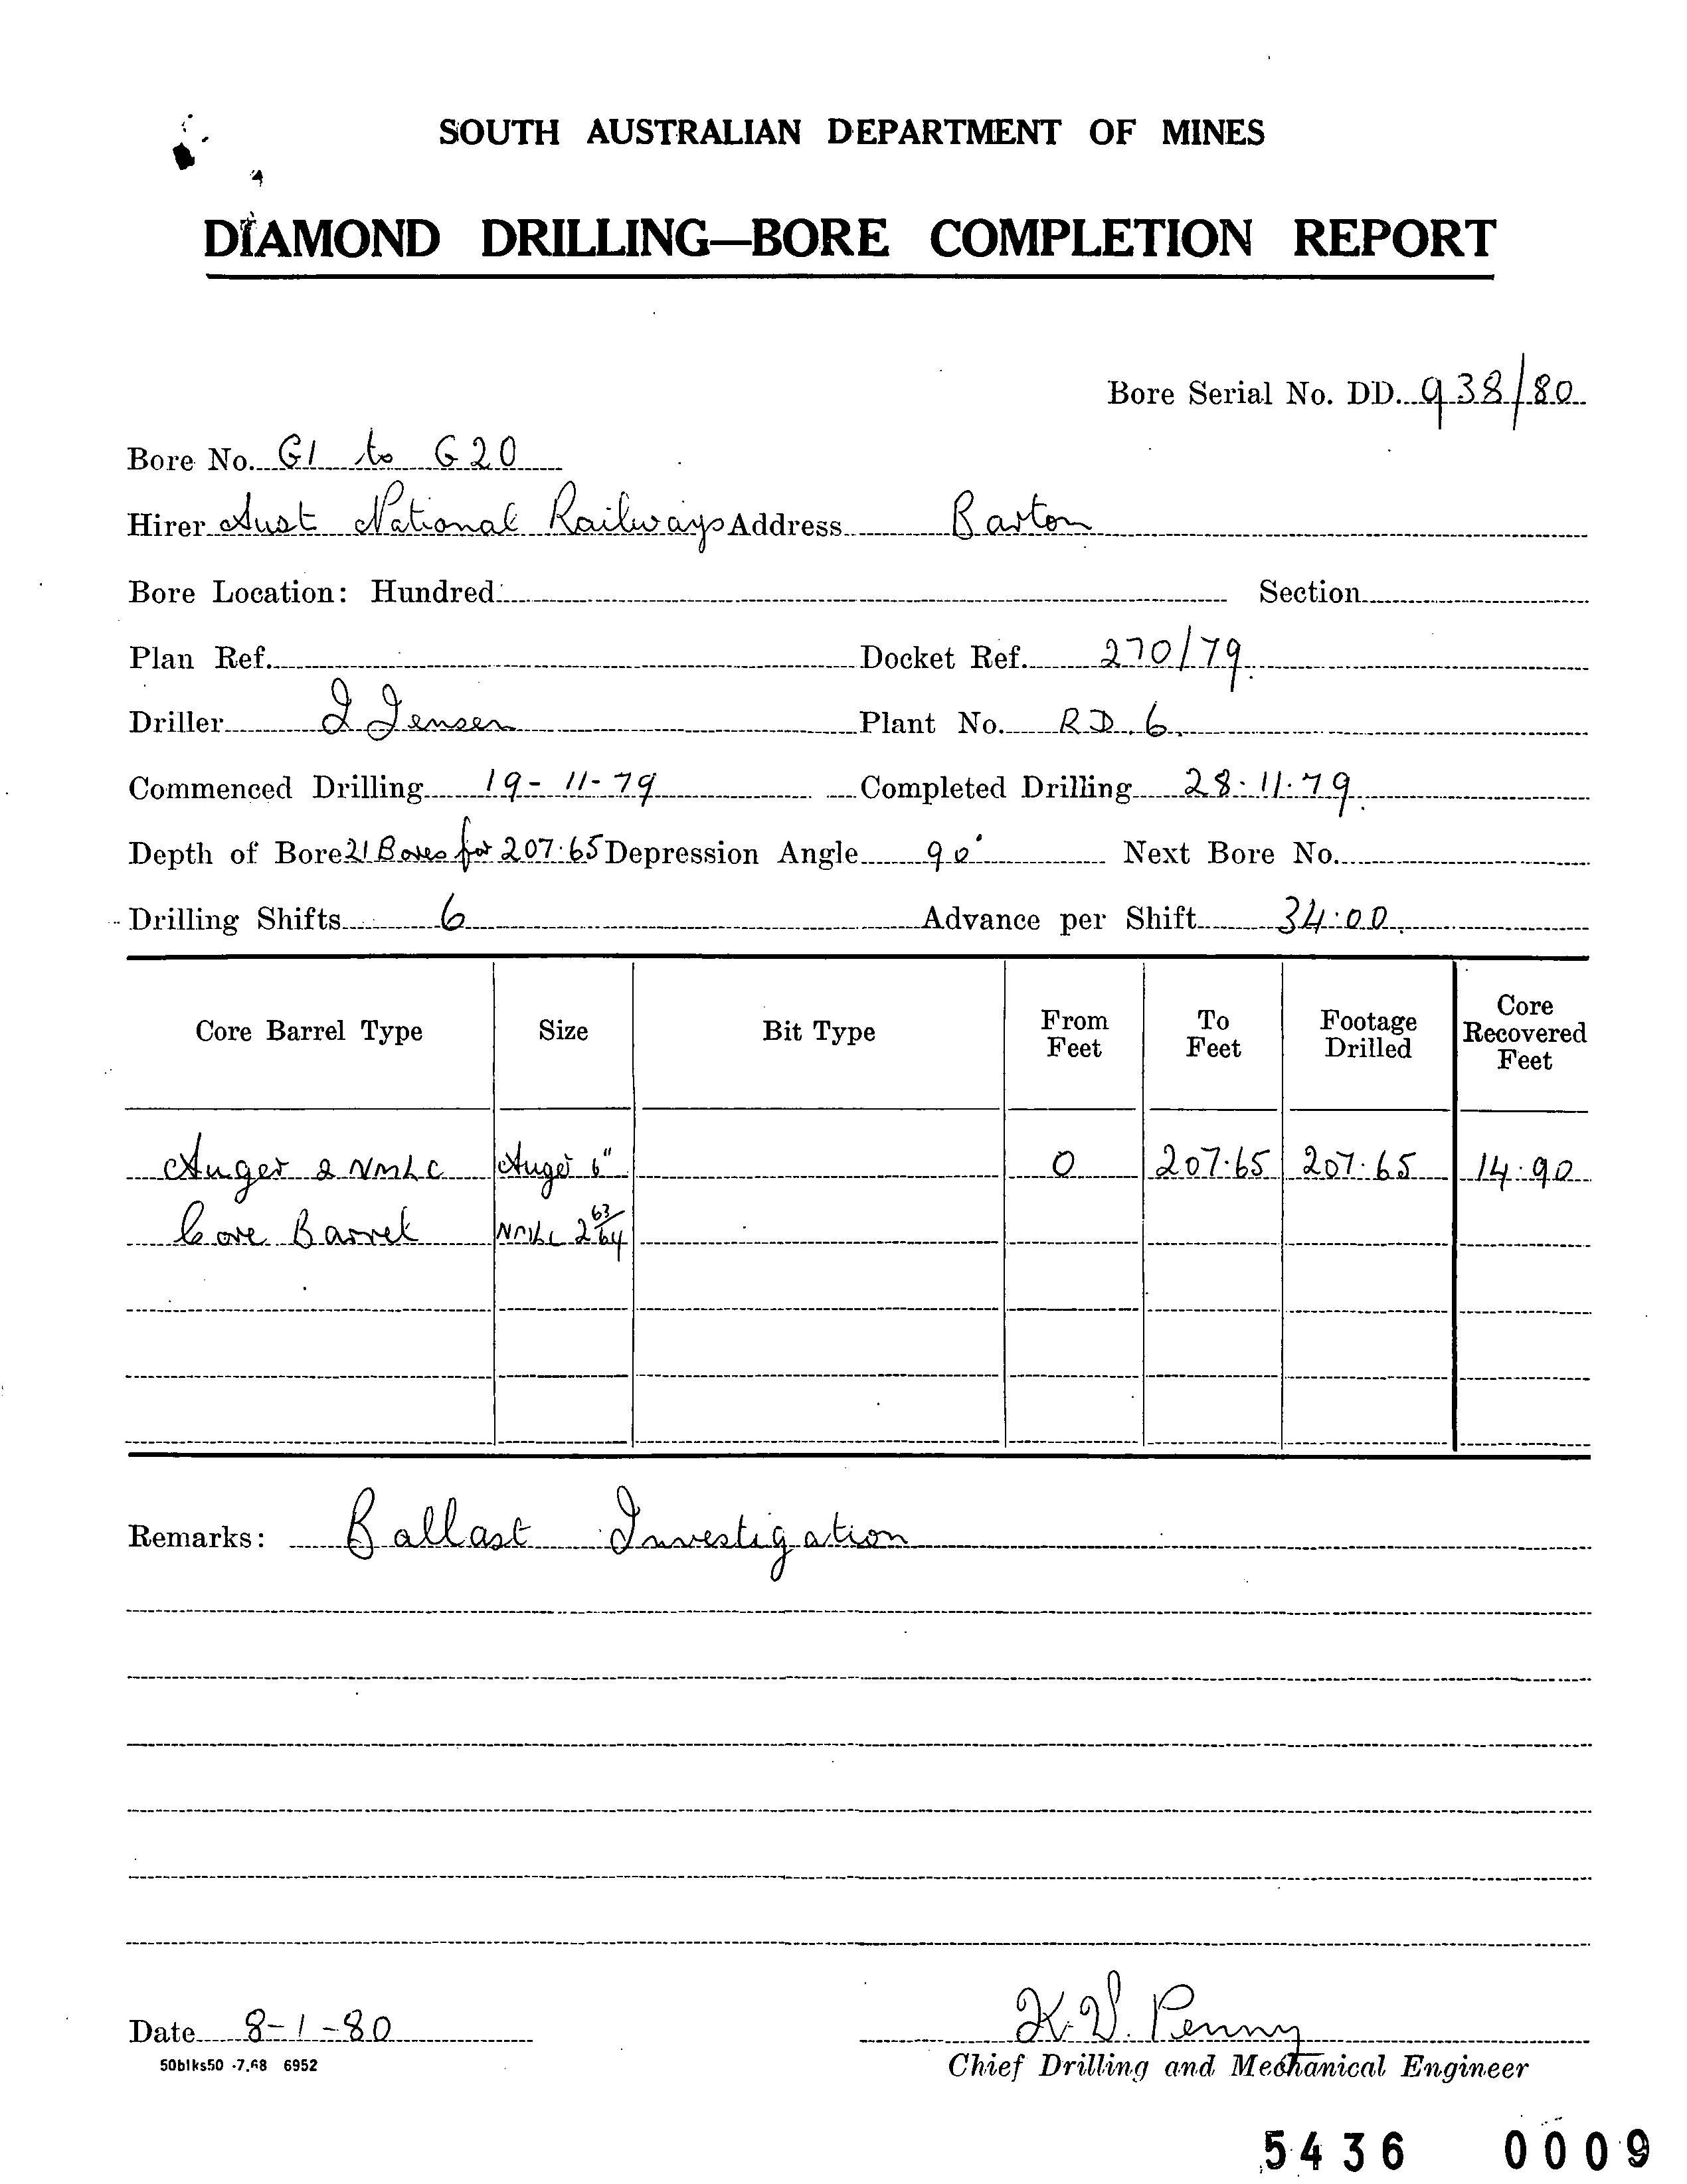 SOUTH AUSTRALIAN DEPARTMENT OF MINES
DIAMOND DRILLING—BORE COMPLETION REPORT
Bore Serial No. DD. 938/80
Bore No. G1 to G20
Hirer Aust National Railways Address Barton
Bore Location: Hundred Section
Plan Ref. Docket Ref. 270/79.
Driller I Jensen Plant No. RD.6.
Commenced Drilling 19-11-79 Completed Drilling 28.11.79.
Depth of Bore 21 Bores for 207.65 Depression Angle 90° Next Bore No.
Drilling Shifts 6 Advance per Shift 34.00.
Core Barrel Type Size Bit Type From Feet To Feet Footage Drilled Core Recovered Feet
Auger & NMLC Auger 6" 0 207.65 207.65 14.90
Core Barrel NMLC 2 63/64
Remarks: Ballast Investigation
Date 8-1-80 K.V. Penny
50blks50 -7.68 6952 Chief Drilling and Mechanical Engineer
5436 0009